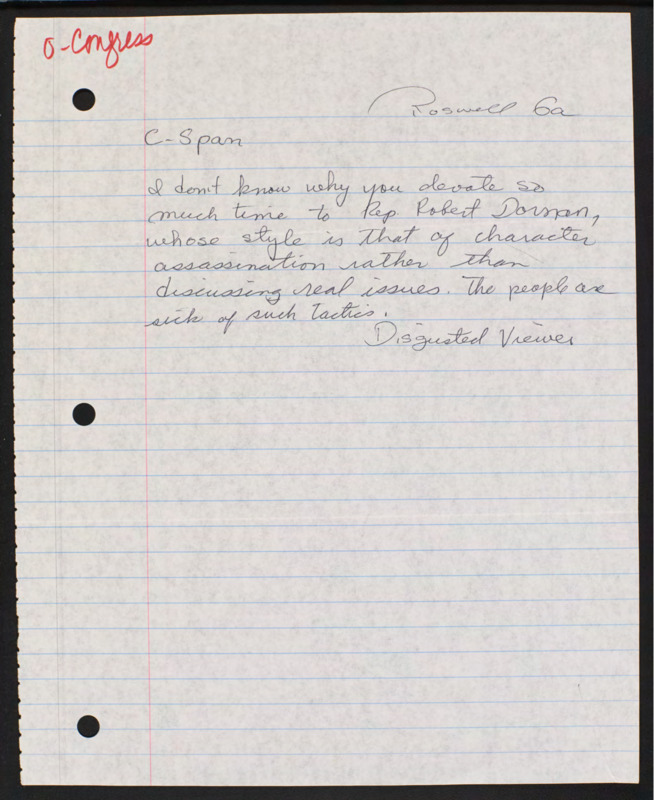 O-Congress
Roswell Ga
C-Span
I don't know why you devote so
much time to Rep Robert Dornan,
whose style is that of character
assassination rather than
discussing real issues. The people are
sick of such tactics.
Disgusted Viewer